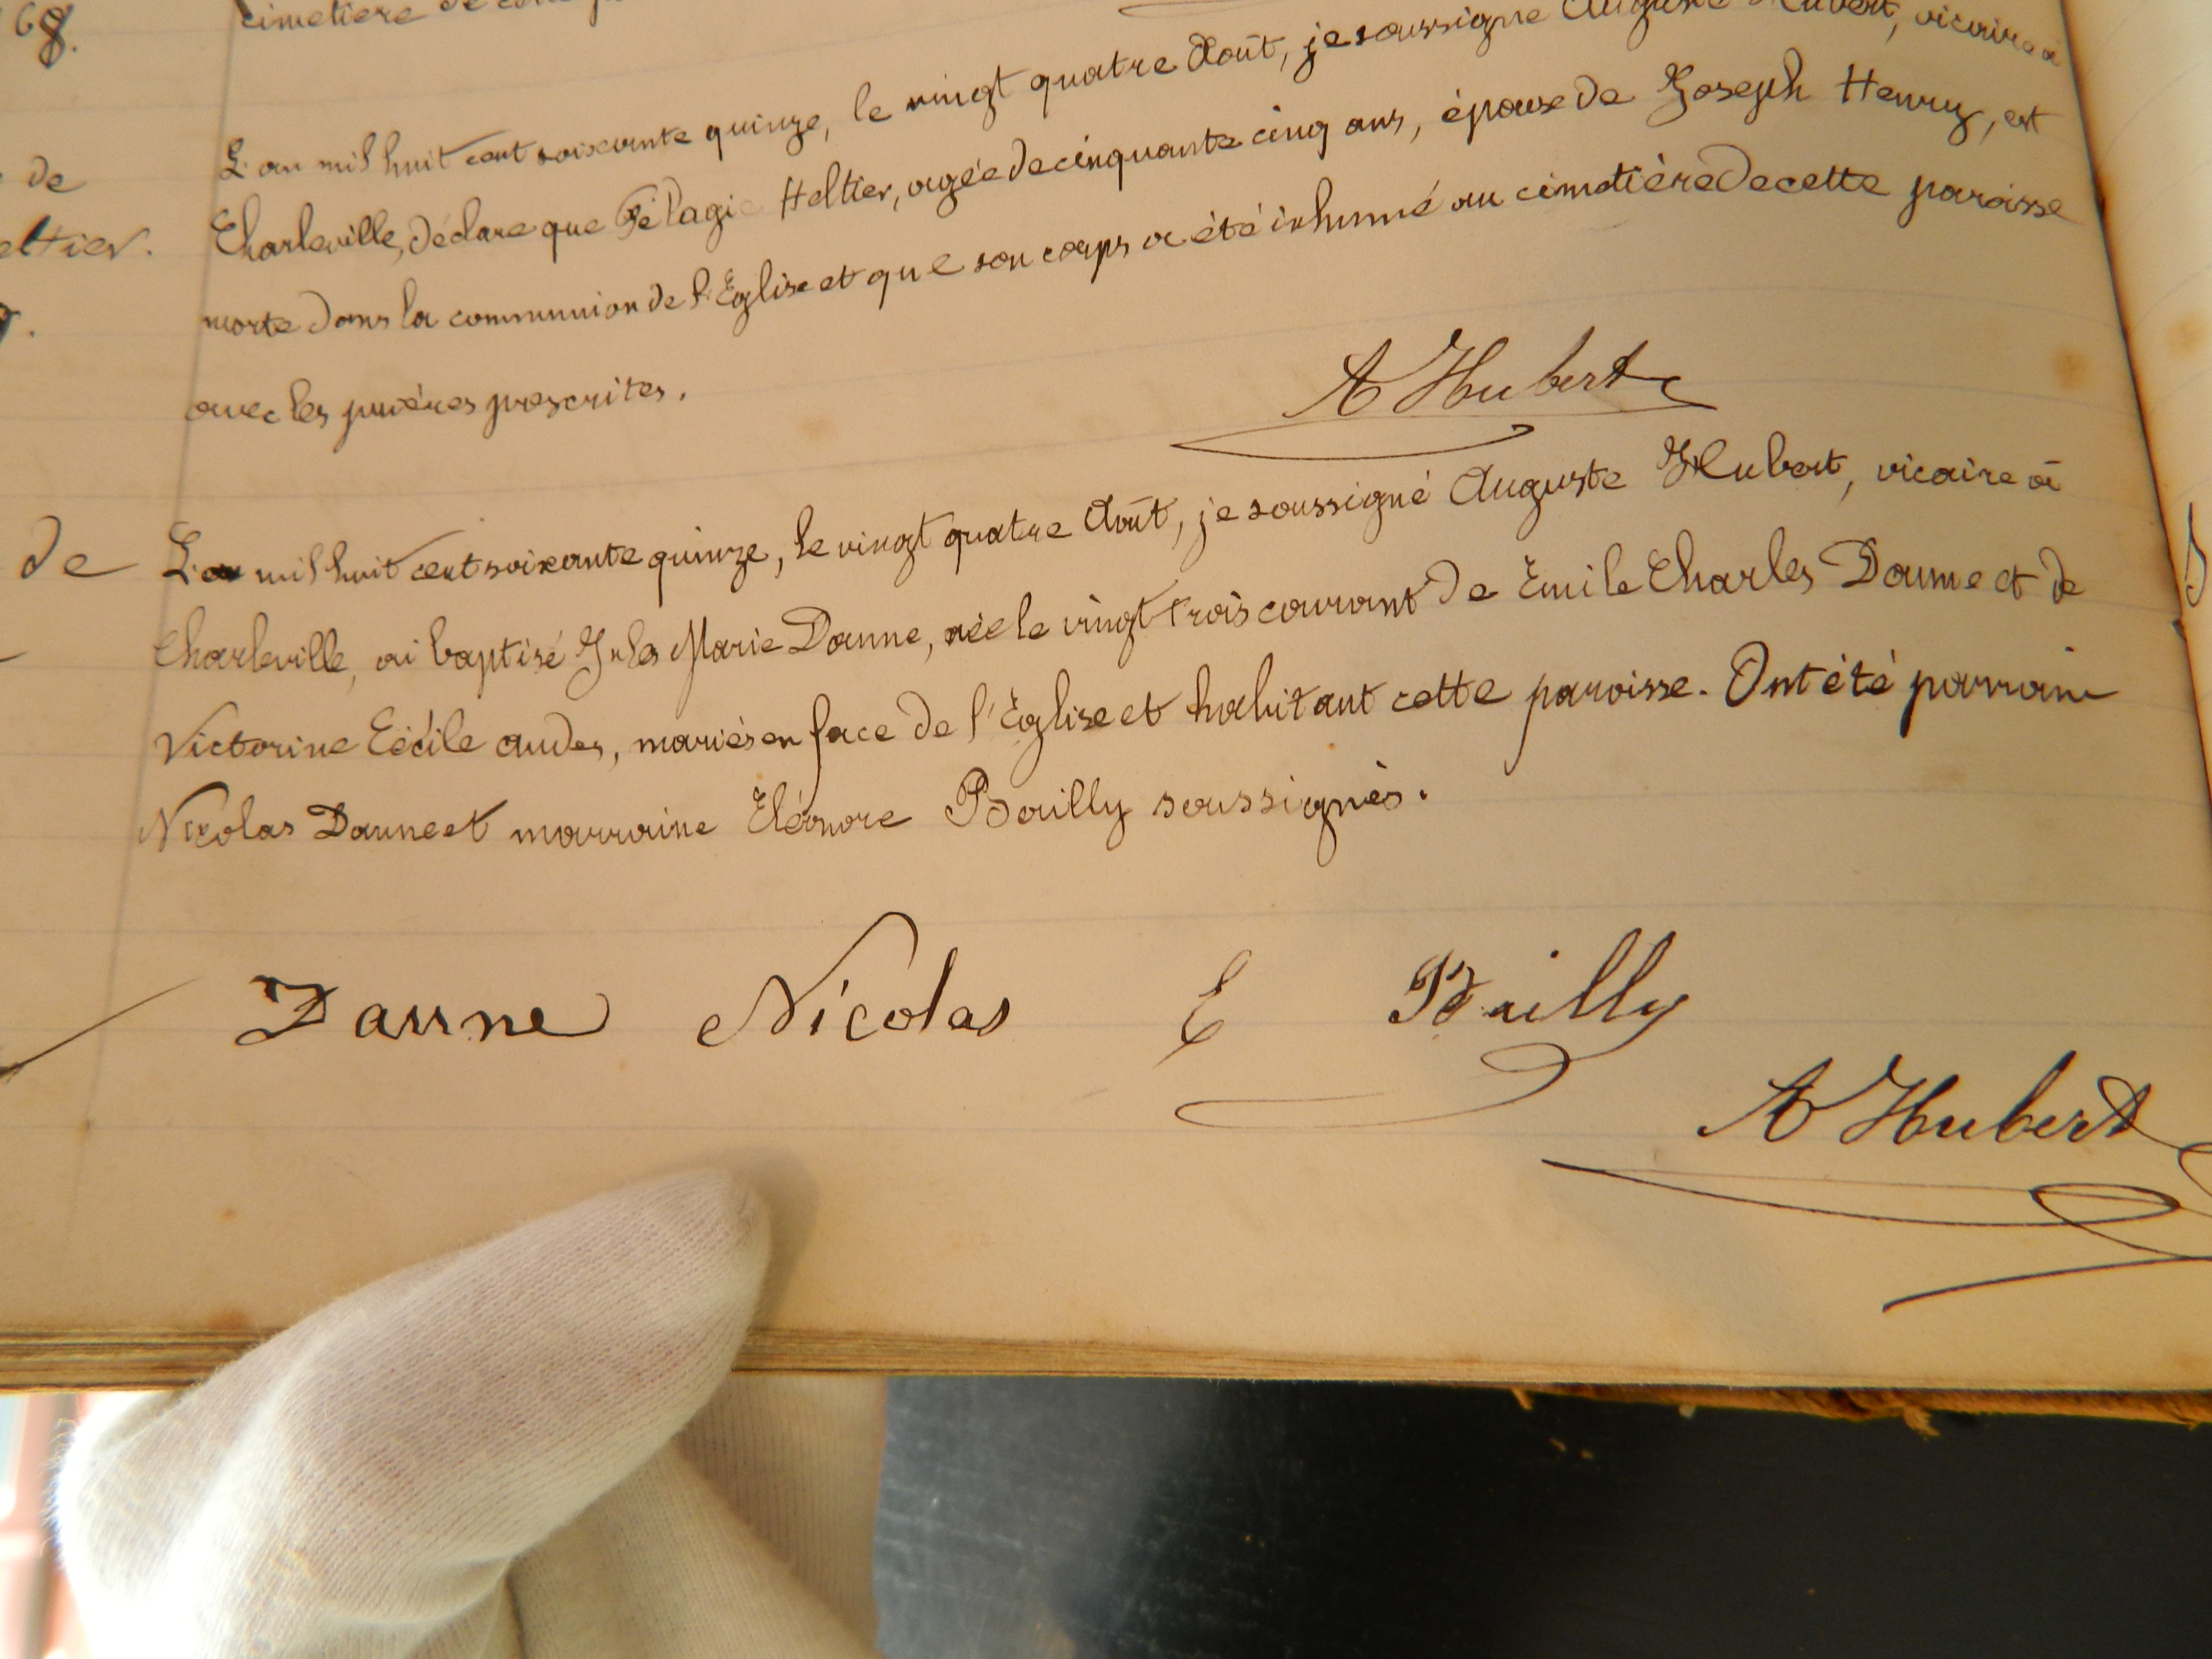 68.
cimetière de cette
L'an mil huit cent soixante quinze, le vingt quatre Août, je soussigné Auguste Hubert, vicaire à
de
Charleville, déclare que Pélagie Heltier, agée de cinquante cinq ans, épouse de Joseph Henry, est
eltier.
morte dans la communion de l'Eglise et que son corps a été inhumé au cimetière de cette paroisse
avec les prières prescrites.
A Hubert
de
L'an mil huit cent soixante quinze, le vingt quatre Août, je soussigné Auguste Hubert, vicaire à
Charleville, ai baptisé Jules Marie Daune, née le vingt trois courant de Emile Charles Daune et de
Victorine Cécile audes, mariés en face de l'Eglise et habitant cette paroisse. Ont été parrain
Nicolas Daune et marraine Eléonore Bailly soussignés.
Daune Nicolas E Bailly
A Hubert